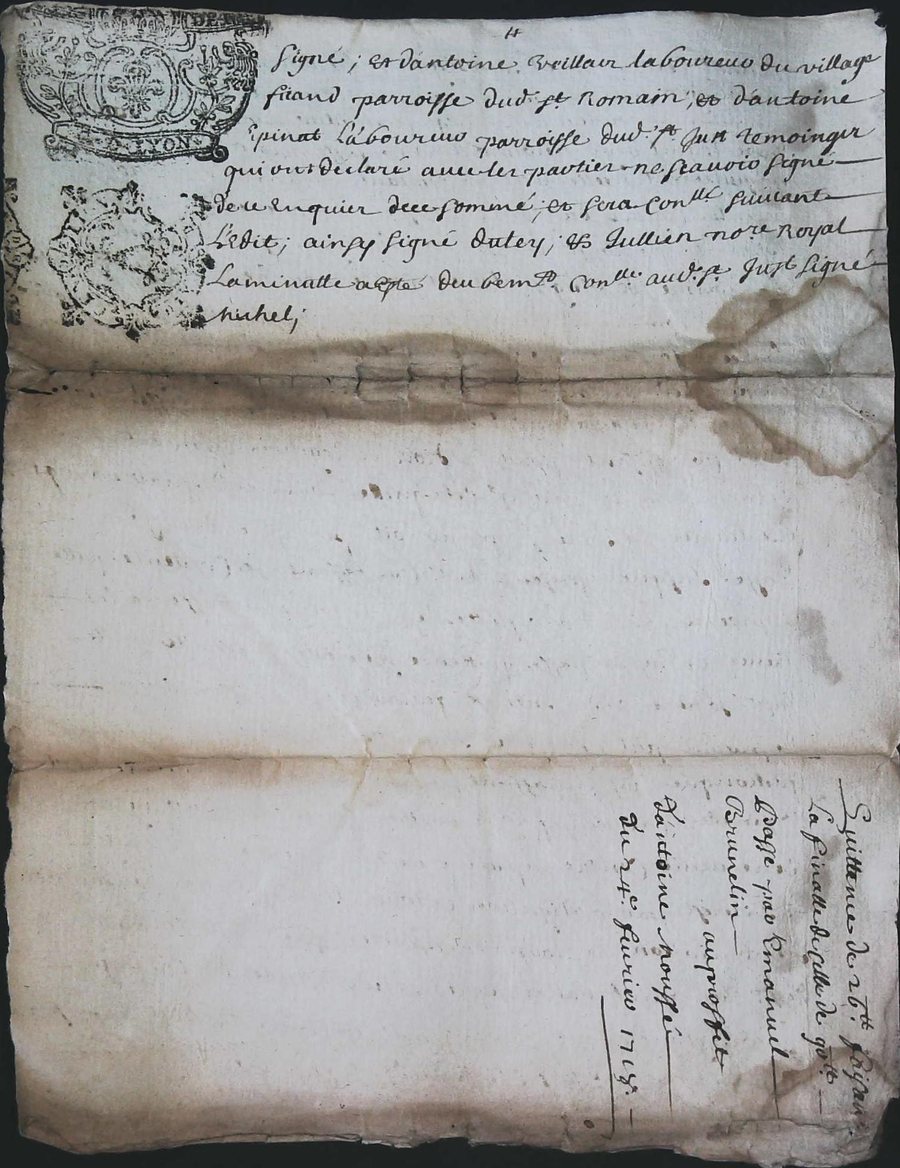 DE LYON
signé, et dantoine Veillair laboureur du village
friand parroisse dud. st Romain, et dantoine
Epinat laboureur parroisse dud. st Just temoinger
qui ont declaré avec les parties ne scavoir signé
de ce Enquier et sommé, et sera conllé suivant
L'Edit; ainsy signé et Jullien nore Royal
La minutte conllé aud. st Just signé
michel,
Quittance de 26tt faisant
La finalle de celle de 90tt
Passé par Emanuel
Brunelin
au proffit
dantoine moussé
du 24e feurier 1718.